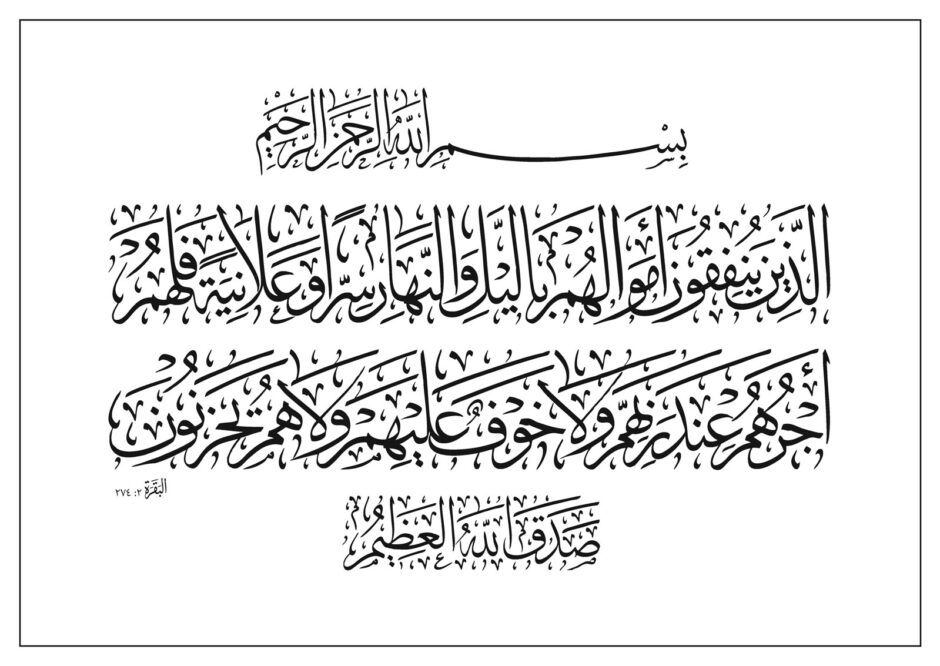 بِسْمِ اللّٰهِ الرَّحْمٰنِ الرَّحِيْمِ
الَّذِينَ يُنفِقُونَ أَمْوَالَهُم بِاللَّيْلِ وَالنَّهَارِ سِرًّا وَعَلَانِيَةً فَلَهُمْ
أَجْرُهُمْ عِندَ رَبِّهِمْ وَلَا خَوْفٌ عَلَيْهِمْ وَلَا هُمْ يَحْزَنُونَ
البَقَرَة ٢: ٢٧٤
صَدَقَ اللّٰهُ الْعَظِيمُ